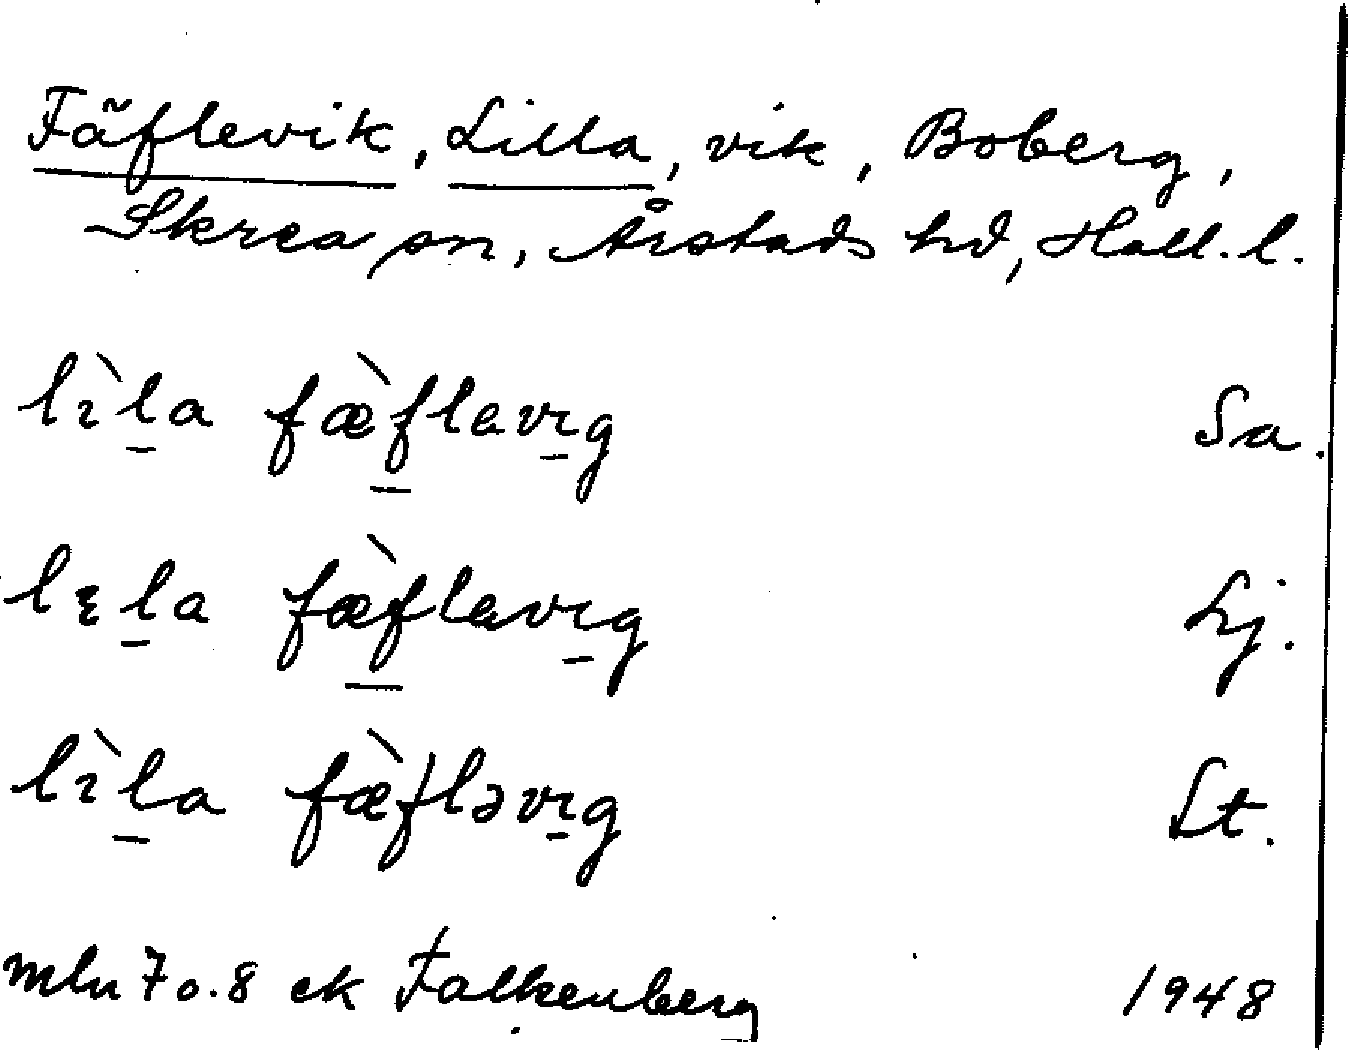 Fäflevik, Lilla, vik, Boberg,
Skrea sn, Årstads hd, Hall. l.
lìla fæ̀flavıg Sa.
lıla fæ̀flavıg Lj.
lìla fæ̀fləvıg St.
mln 7 o. 8 ek Falkenberg 1948